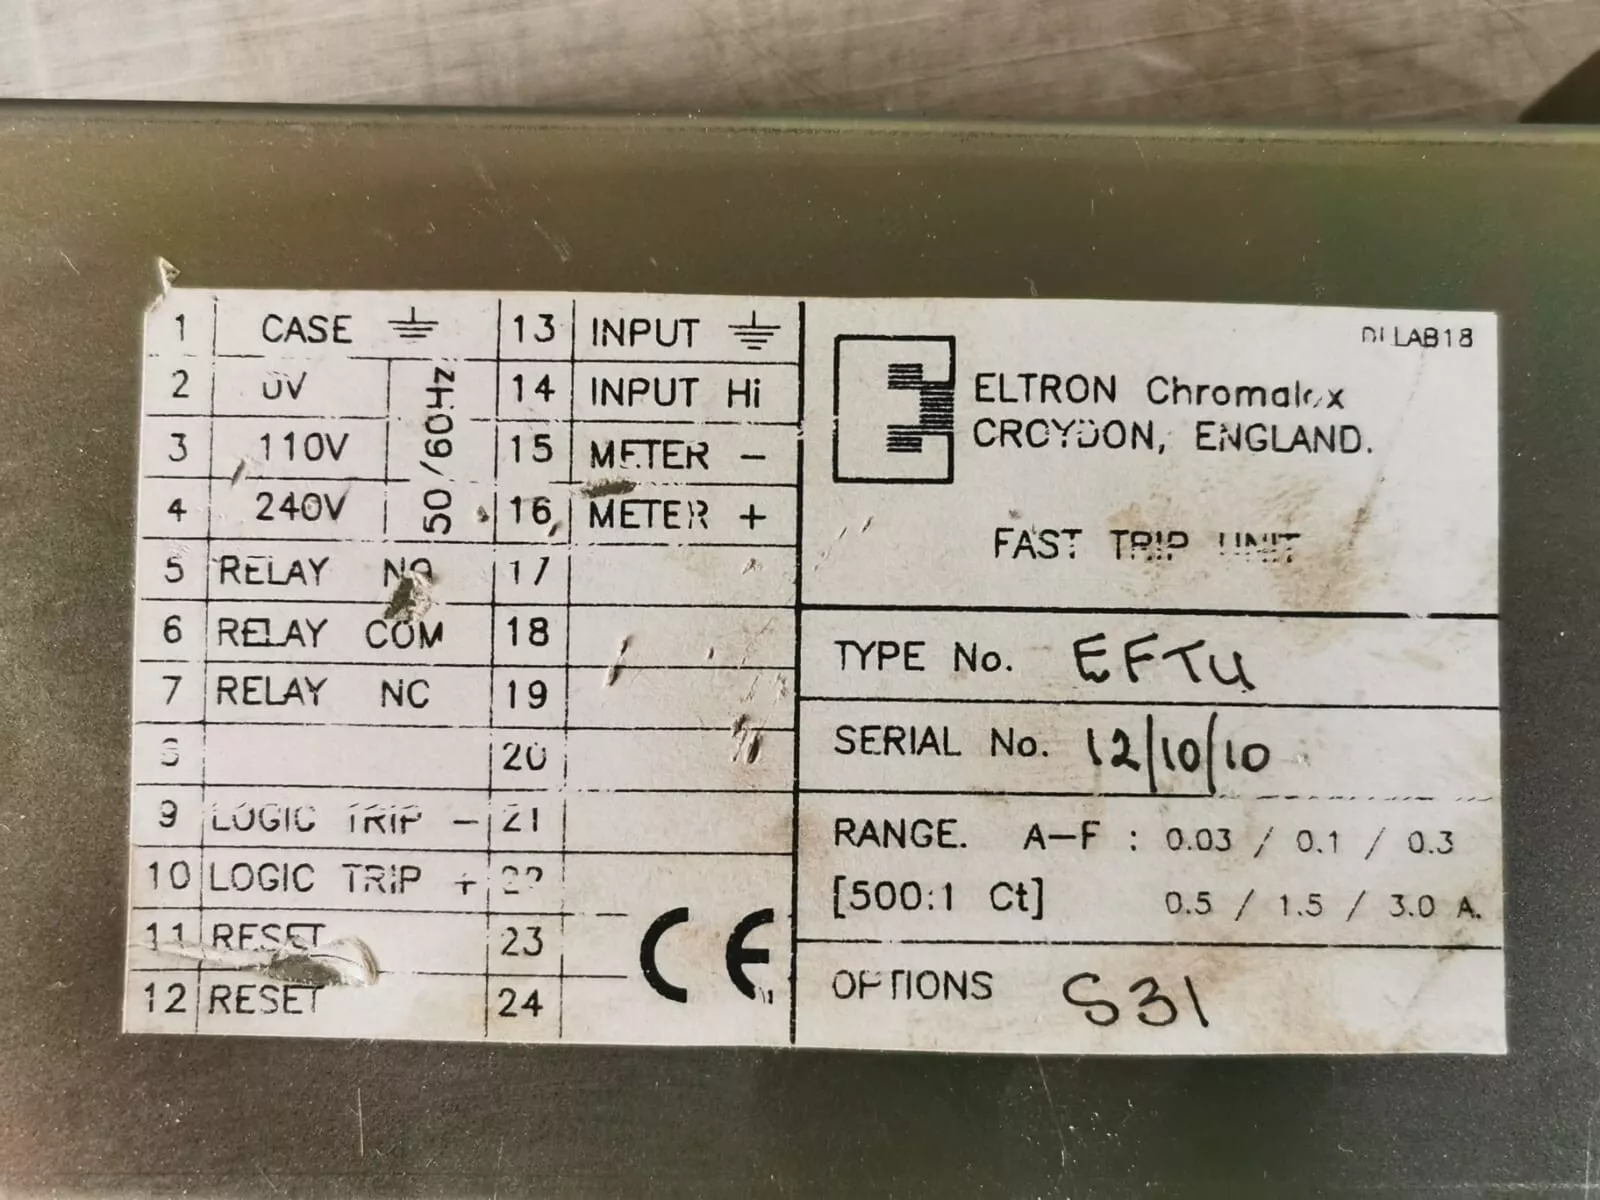 1 CASE 13 INPUT
2 0V 50/60Hz 14 INPUT Hi
3 110V 15 METER -
4 240V 16 METER +
5 RELAY NO 17
6 RELAY COM 18
7 RELAY NC 19
8 20
9 LOGIC TRIP - 21
10 LOGIC TRIP + 22
11 RESET 23
12 RESET 24
CE
LAB18
E
ELTRON Chromalox
CROYDON, ENGLAND.
FAST TRIP UNIT
TYPE No. EFTU
SERIAL No. 12/10/10
RANGE. A-F : 0.03 / 0.1 / 0.3
[500:1 Ct] 0.5 / 1.5 / 3.0 A.
OPTIONS S31